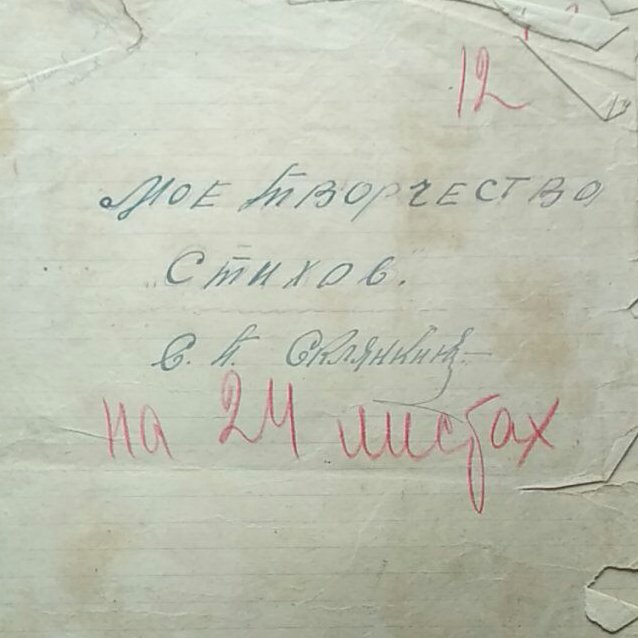 12
Мое творчество
стихов.
С. К. Склянкин
на 24 листах